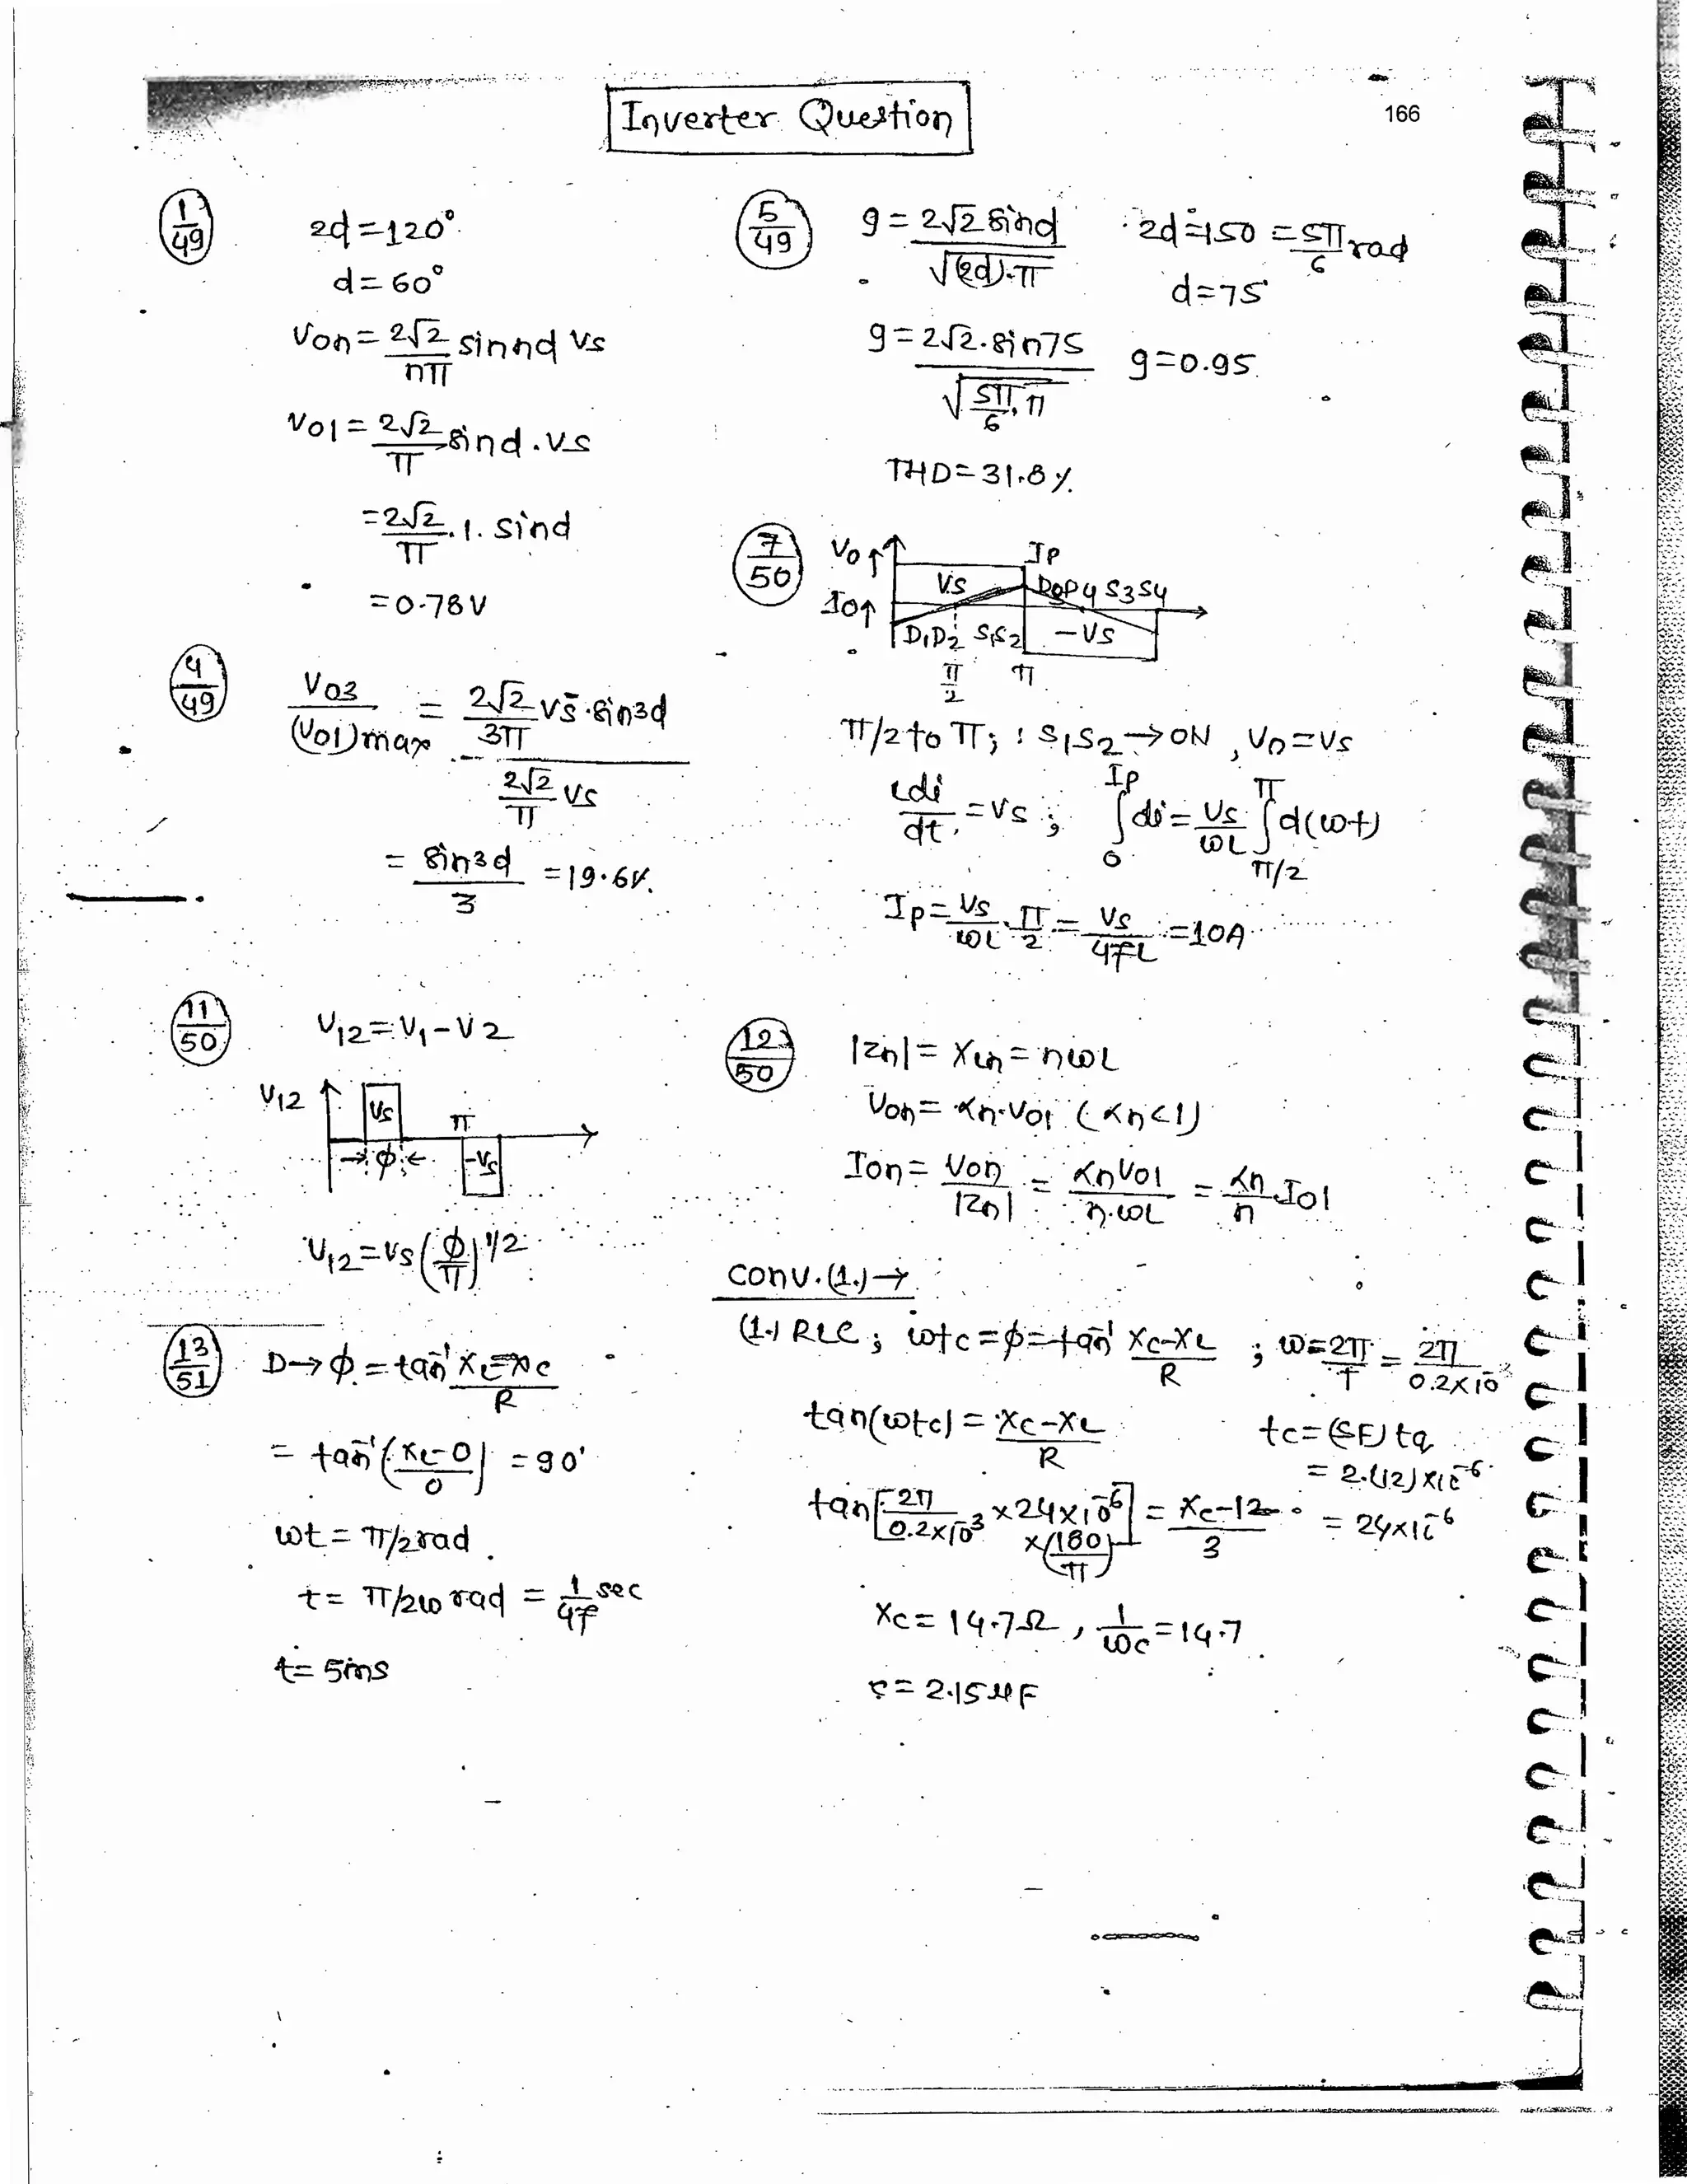 Inverter Question
166
1/49
2d = 120°
d = 60°
Von = 2√2/nπ sin nd Vs
V01 = 2√2/π sin d . Vs
= 2√2/π . 1 . sin d
= 0.78 V
4/49
V03/(V01)max = (2√2/3π Vs . sin 3d)/(2√2/π Vs)
= sin 3d/3 = 19.6%.
11/50
V12 = V1 - V2
V12
Vs
π
→ φ ←
-Vs
V12 = Vs (φ/π)^1/2
13/51
D → φ = tan⁻¹ (XL - XC)/R
= tan⁻¹ ((XL - 0)/0) = 90°
ωt = π/2 rad.
t = π/2ω rad = 1/4f sec
t = 5ms
5/49
g = 2√2 sin d/√(2d).π
2d = 150 = 5π/6 rad
d = 75°
g = 2√2 . sin 75/√(5π/6 . π)
g = 0.95
THD = 31.8 %.
7/50
Vo ↑
Ip
Vs
D3D4 S3S4
Io ↑
D1D2 S1S2
-Vs
π/2
π
π/2 to π ; : S1S2 → ON , Vo = Vs
Ldi/dt = Vs ; ∫₀^Ip di = Vs/ωL ∫_π/2^π d(ωt)
Ip = Vs/ωL . π/2 = Vs/4fL = 10A
12/50
|Zn| = XLn = nωL
Von = αn . V01 (αn < 1)
Ion = Von/|Zn| = αnV01/n.ωL = αn/n I01
Conv. (1.) →
(1.) RLC ; ωtc = φ = tan⁻¹ (XC - XL)/R ; ω = 2π/T = 2π/0.2×10⁻³
tan(ωtc) = (XC - XL)/R
tc = (SF) tq
= 2.(12)×10⁻⁶
tan[2π/0.2×10⁻³ × 24×10⁻⁶ × (180/π)] = (Xc - 12)/3
= 24×10⁻⁶
Xc = 14.7Ω , 1/ωc = 14.7
c = 2.15 μF